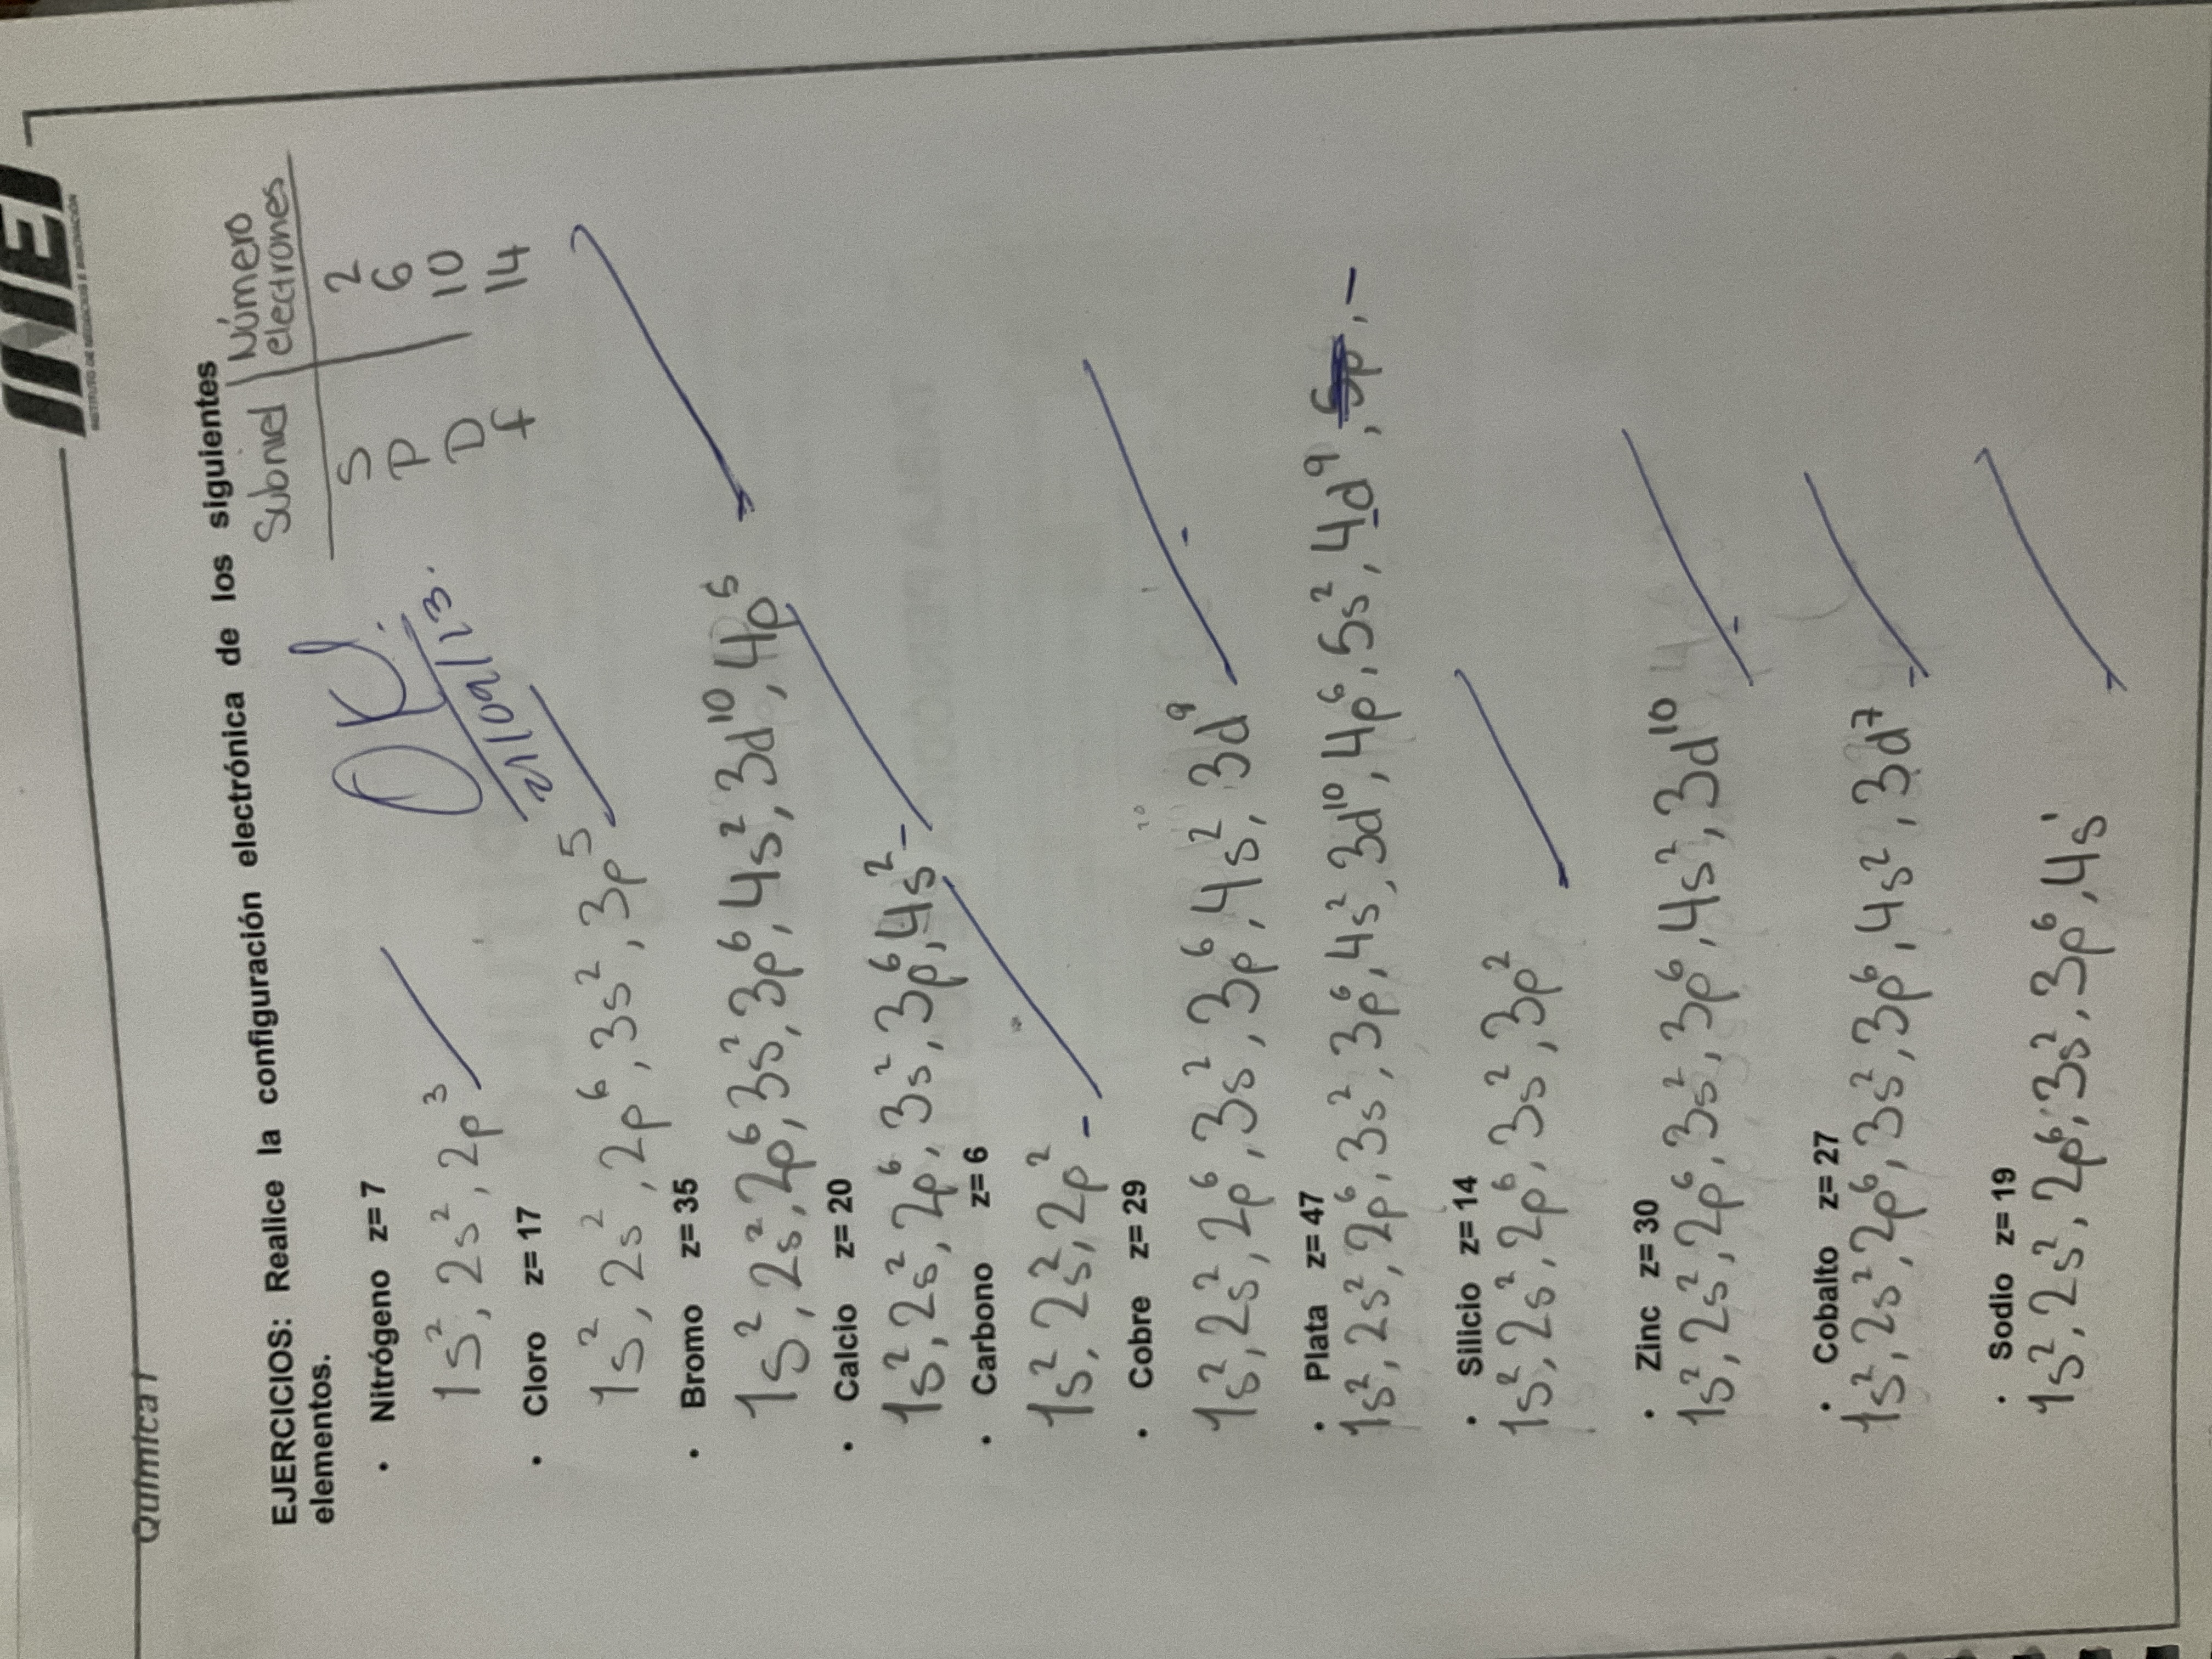 INEI
INSTITUTO DE NEGOCIOS E INNOVACIÓN
Química I
EJERCICIOS: Realice la configuración electrónica de los siguientes
elementos.
Subnivel | Número electrones
S 2
P 6
D 10
f 14
OK!
21/09/13.
• Nitrógeno z= 7
1s², 2s², 2p³
• Cloro z= 17
1s², 2s², 2p⁶, 3s², 3p⁵
• Bromo z= 35
1s², 2s², 2p⁶, 3s², 3p⁶, 4s², 3d¹⁰, 4p⁵
• Calcio z= 20
1s², 2s², 2p⁶, 3s², 3p⁶, 4s²
• Carbono z= 6
1s², 2s², 2p²
• Cobre z= 29
1s², 2s², 2p⁶, 3s², 3p⁶, 4s², 3d⁹
• Plata z= 47
1s², 2s², 2p⁶, 3s², 3p⁶, 4s², 3d¹⁰, 4p⁶, 5s², 4d⁹,
• Silicio z= 14
1s², 2s², 2p⁶, 3s², 3p²
• Zinc z= 30
1s², 2s², 2p⁶, 3s², 3p⁶, 4s², 3d¹⁰
• Cobalto z= 27
1s², 2s², 2p⁶, 3s², 3p⁶, 4s², 3d⁷
• Sodio z= 19
1s², 2s², 2p⁶, 3s², 3p⁶, 4s¹